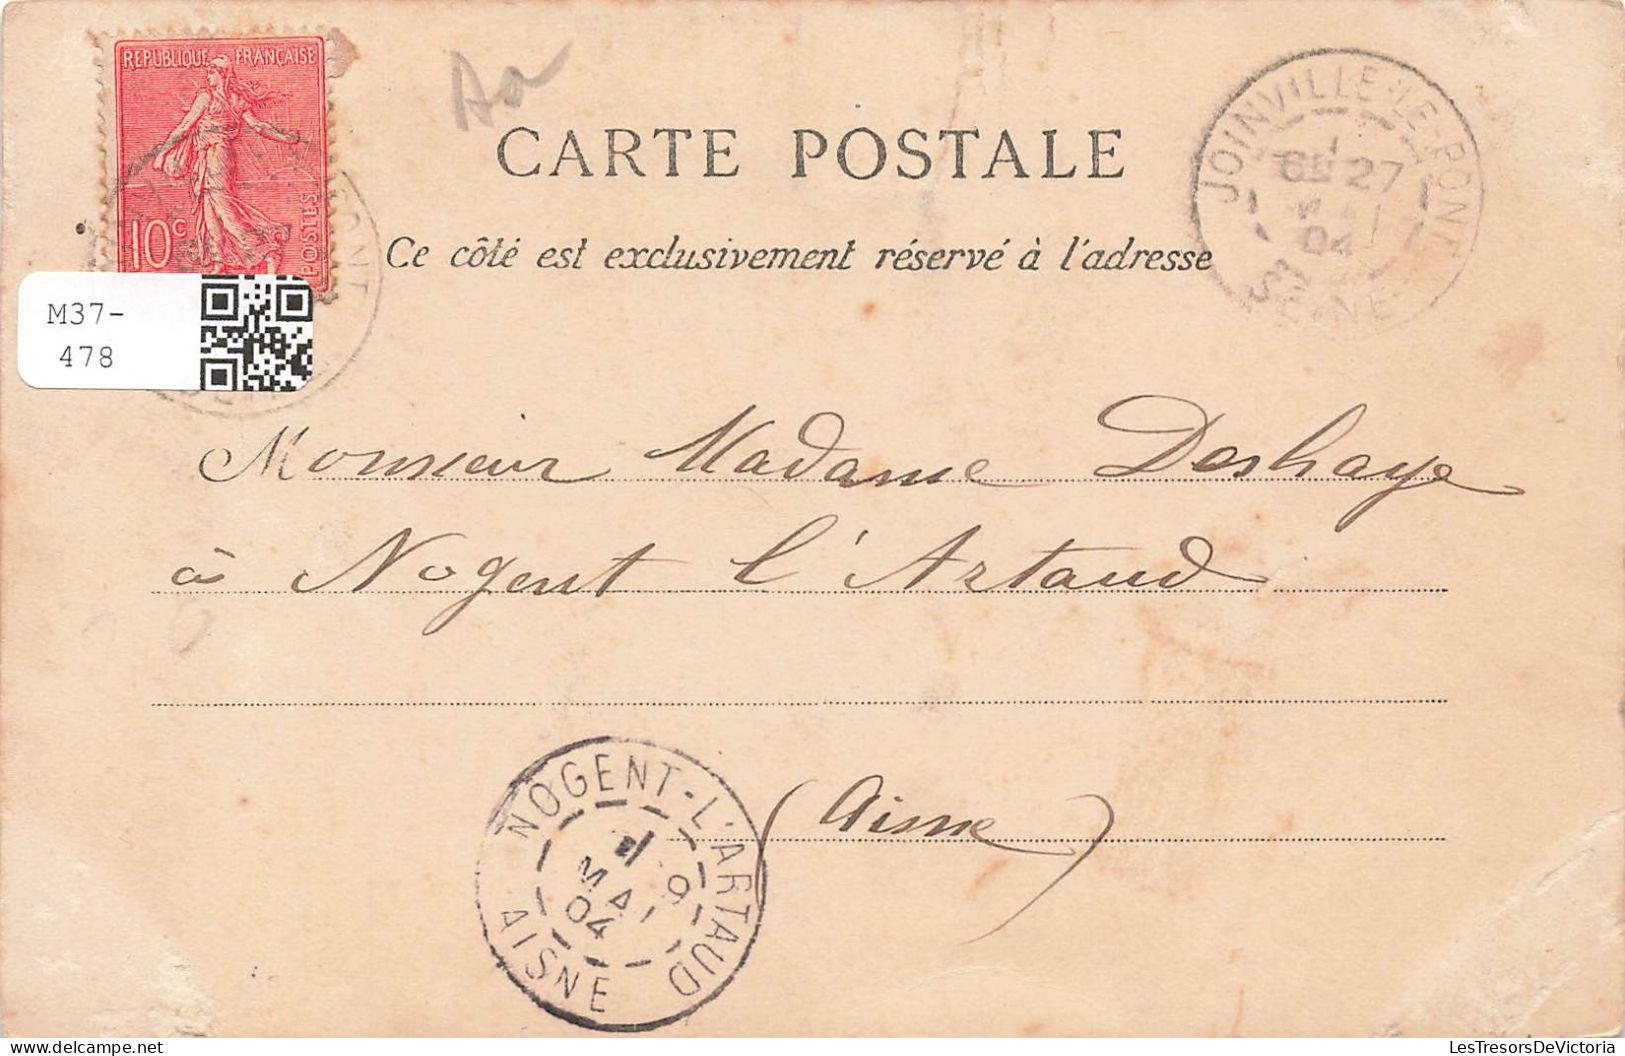 REPUBLIQUE FRANÇAISE
10c
POSTES
M37-
478
Aa
CARTE POSTALE
Ce côté est exclusivement réservé à l'adresse
JOINVILLE-LE-PONT
27
MAI
04
SEINE
Monsieur Madame Deshaye
à Nogent l'Artaud
(Aisne)
NOGENT-L'ARTAUD
MAI
04
AISNE
LesTresorsDeVictoria